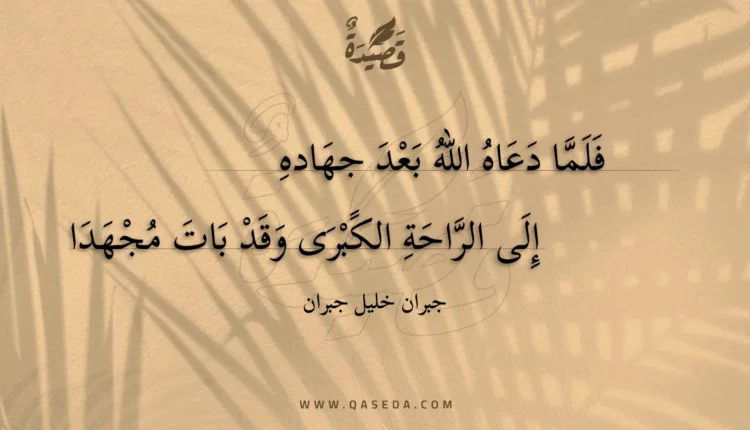 قَصِيْدَةٌ
فَلَمَّا دَعَاهُ اللهُ بَعْدَ جهَادهِ
إِلَى الرَّاحَةِ الكًبْرَى وَقَدْ بَاتَ مُجْهَدَا
جبران خليل جبران
WWW.QASEDA.COM